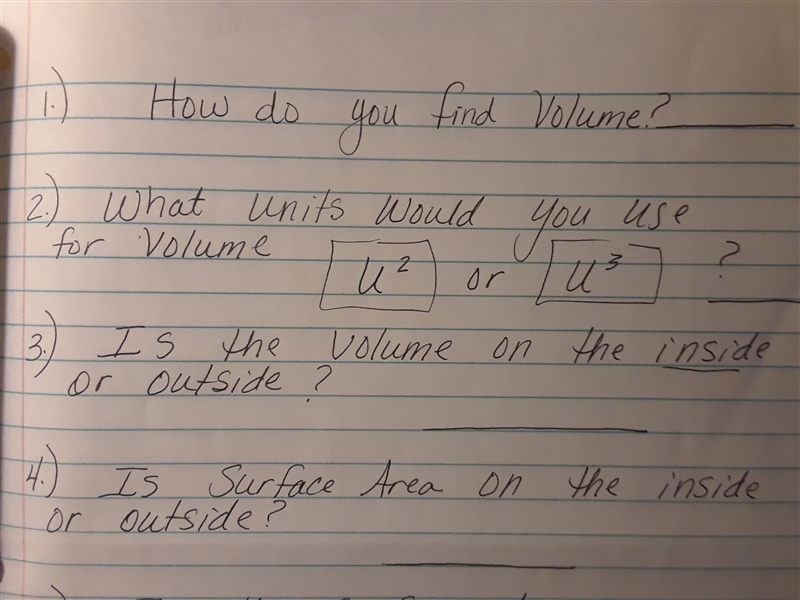 1.) How do you find Volume? ____
2.) What units would you use
for Volume u² or u³ ? ____
3.) Is the Volume on the inside
or outside? ____
4.) Is Surface Area on the inside
or outside? ____